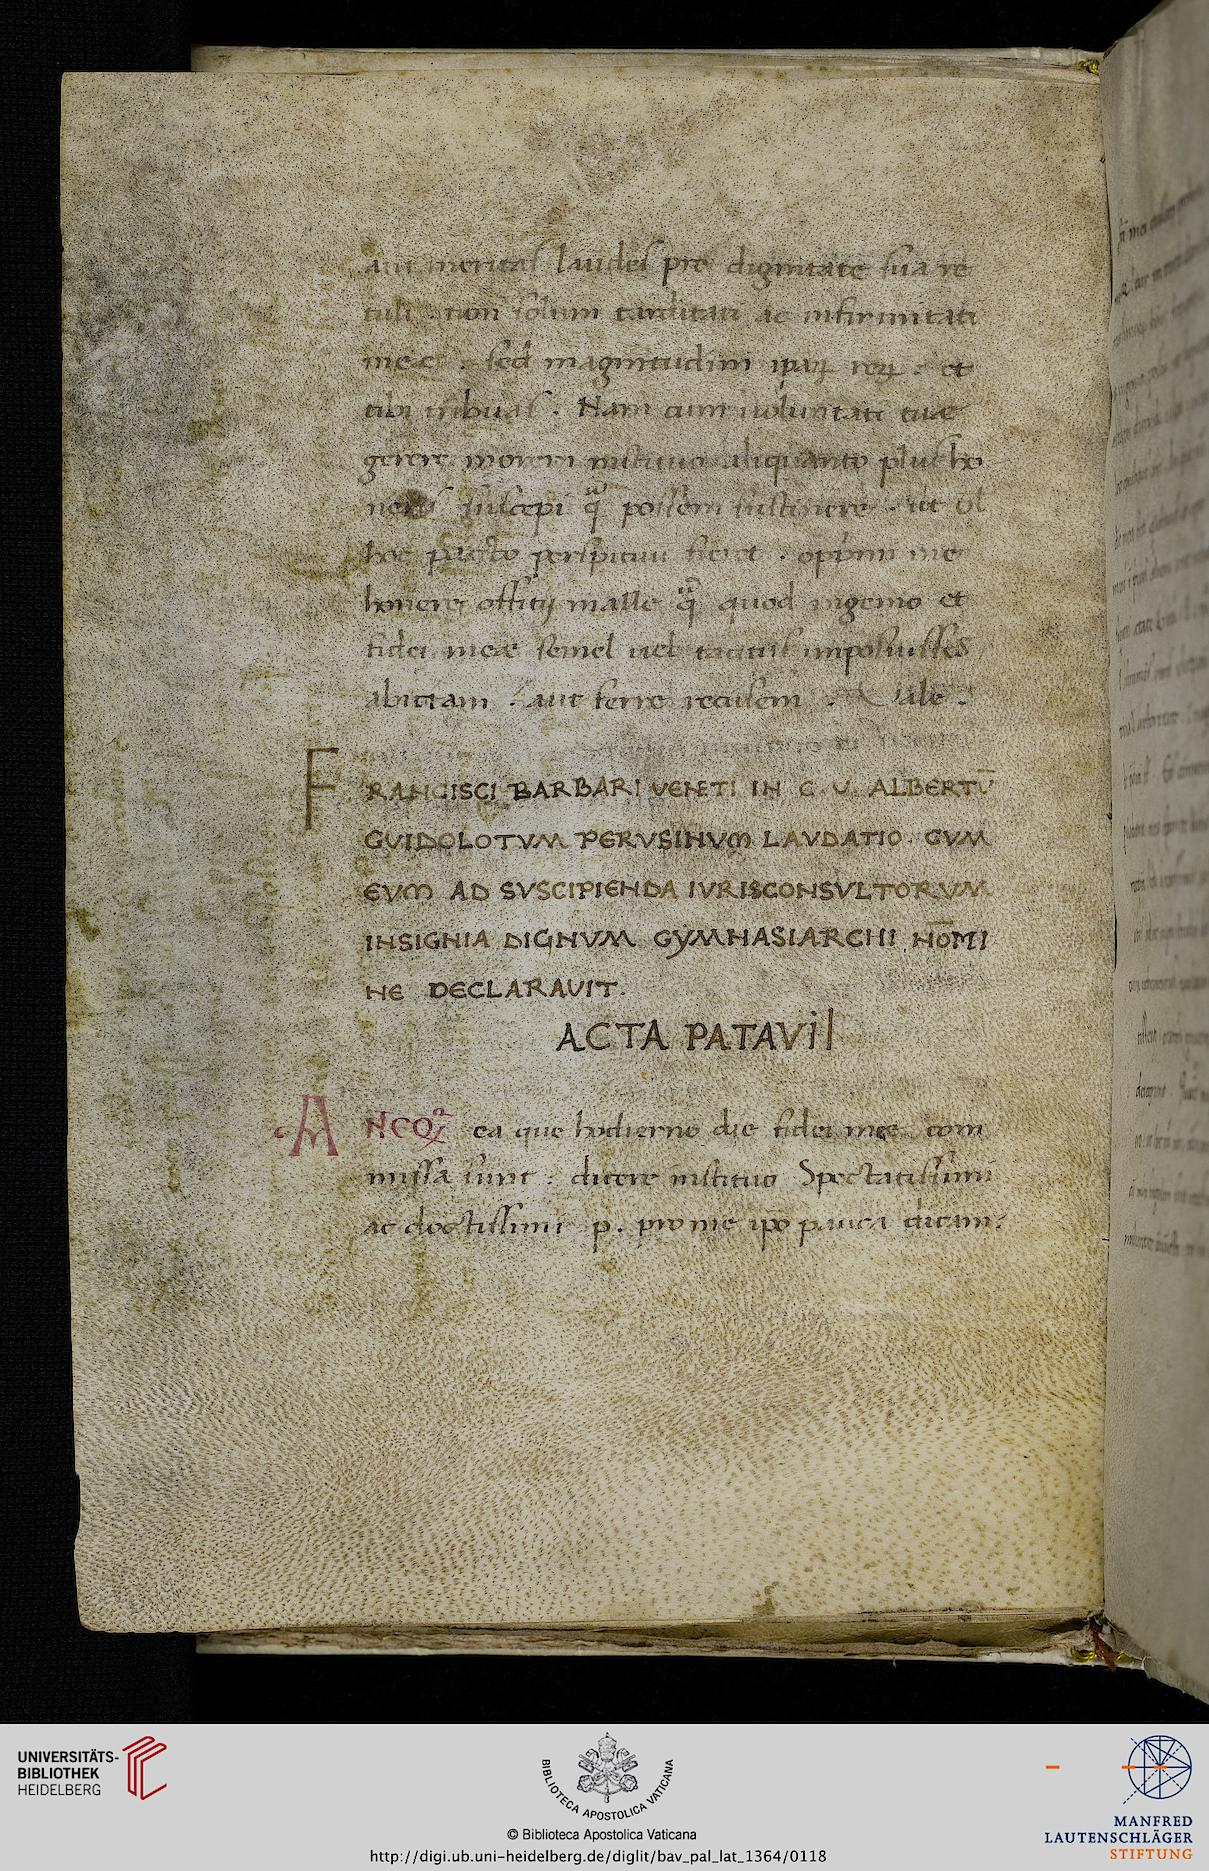 aut meritas laudes pro dignitate sua re
tuli non solum tarditati ac infirmitati
mee . sed magnitudini ipaꝝ reꝝ . et
tibi tribuas . Nam cum uoluntati tuae
gerere morem instituo aliquanto plus ho
neris suscepi q̃ possem sustinere . ut uł
hoc pacto perspicuu fieret . opprimi me
honere offitij malle q̃ quod ingenio et
fidei meae semel uel tacitus imposuisses
abictam . aut ferre recusem . Vale .
FRANCISCI BARBARI VENETI IN C. V. ALBERTV̄
GVIDOLOTVM PERVSINVM LAVDATIO. CVM
EVM AD SVSCIPIENDA IVRISCONSVLTORVM
INSIGNIA DIGNVM GYMNASIARCHI NŌMI
NE DECLARAVIT.
ACTA PATAVII
ANTEQ̃ ea que hodierno die fidei mee com
missa sunt : dicere instituo Spectatissimi
ac doctissimi p. pro me ipo pauca dicam:
UNIVERSITÄTS-
BIBLIOTHEK
HEIDELBERG
BIBLIOTECA APOSTOLICA VATICANA
© Biblioteca Apostolica Vaticana
http://digi.ub.uni-heidelberg.de/diglit/bav_pal_lat_1364/0118
MANFRED
LAUTENSCHLÄGER
STIFTUNG